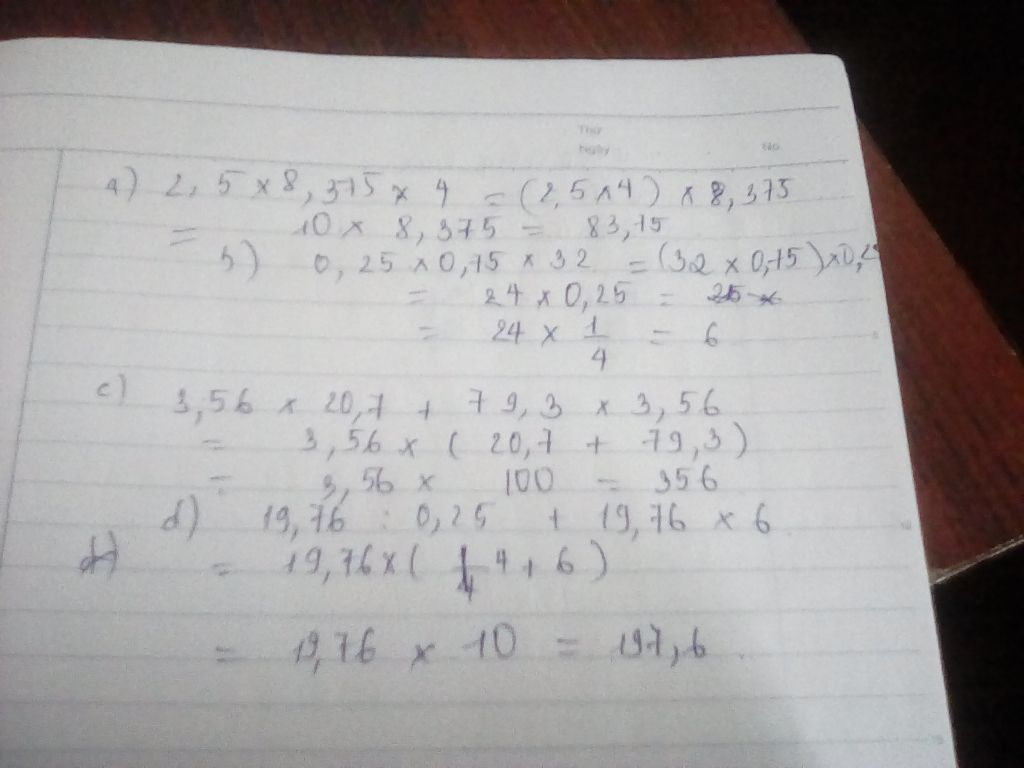 Thứ
Ngày
No
a) 2,5 x 8,375 x 4 = (2,5 x 4) x 8,375
= 10 x 8,375 = 83,75
b) 0,25 x 0,75 x 32 = (32 x 0,75) x 0,2
= 24 x 0,25 =
= 24 x 1/4 = 6
c) 3,56 x 20,7 + 79,3 x 3,56
= 3,56 x ( 20,7 + 79,3 )
= 3,56 x 100 = 356
d) 19,76 : 0,25 + 19,76 x 6
= 19,76 x ( 4 + 6 )
= 19,76 x 10 = 197,6